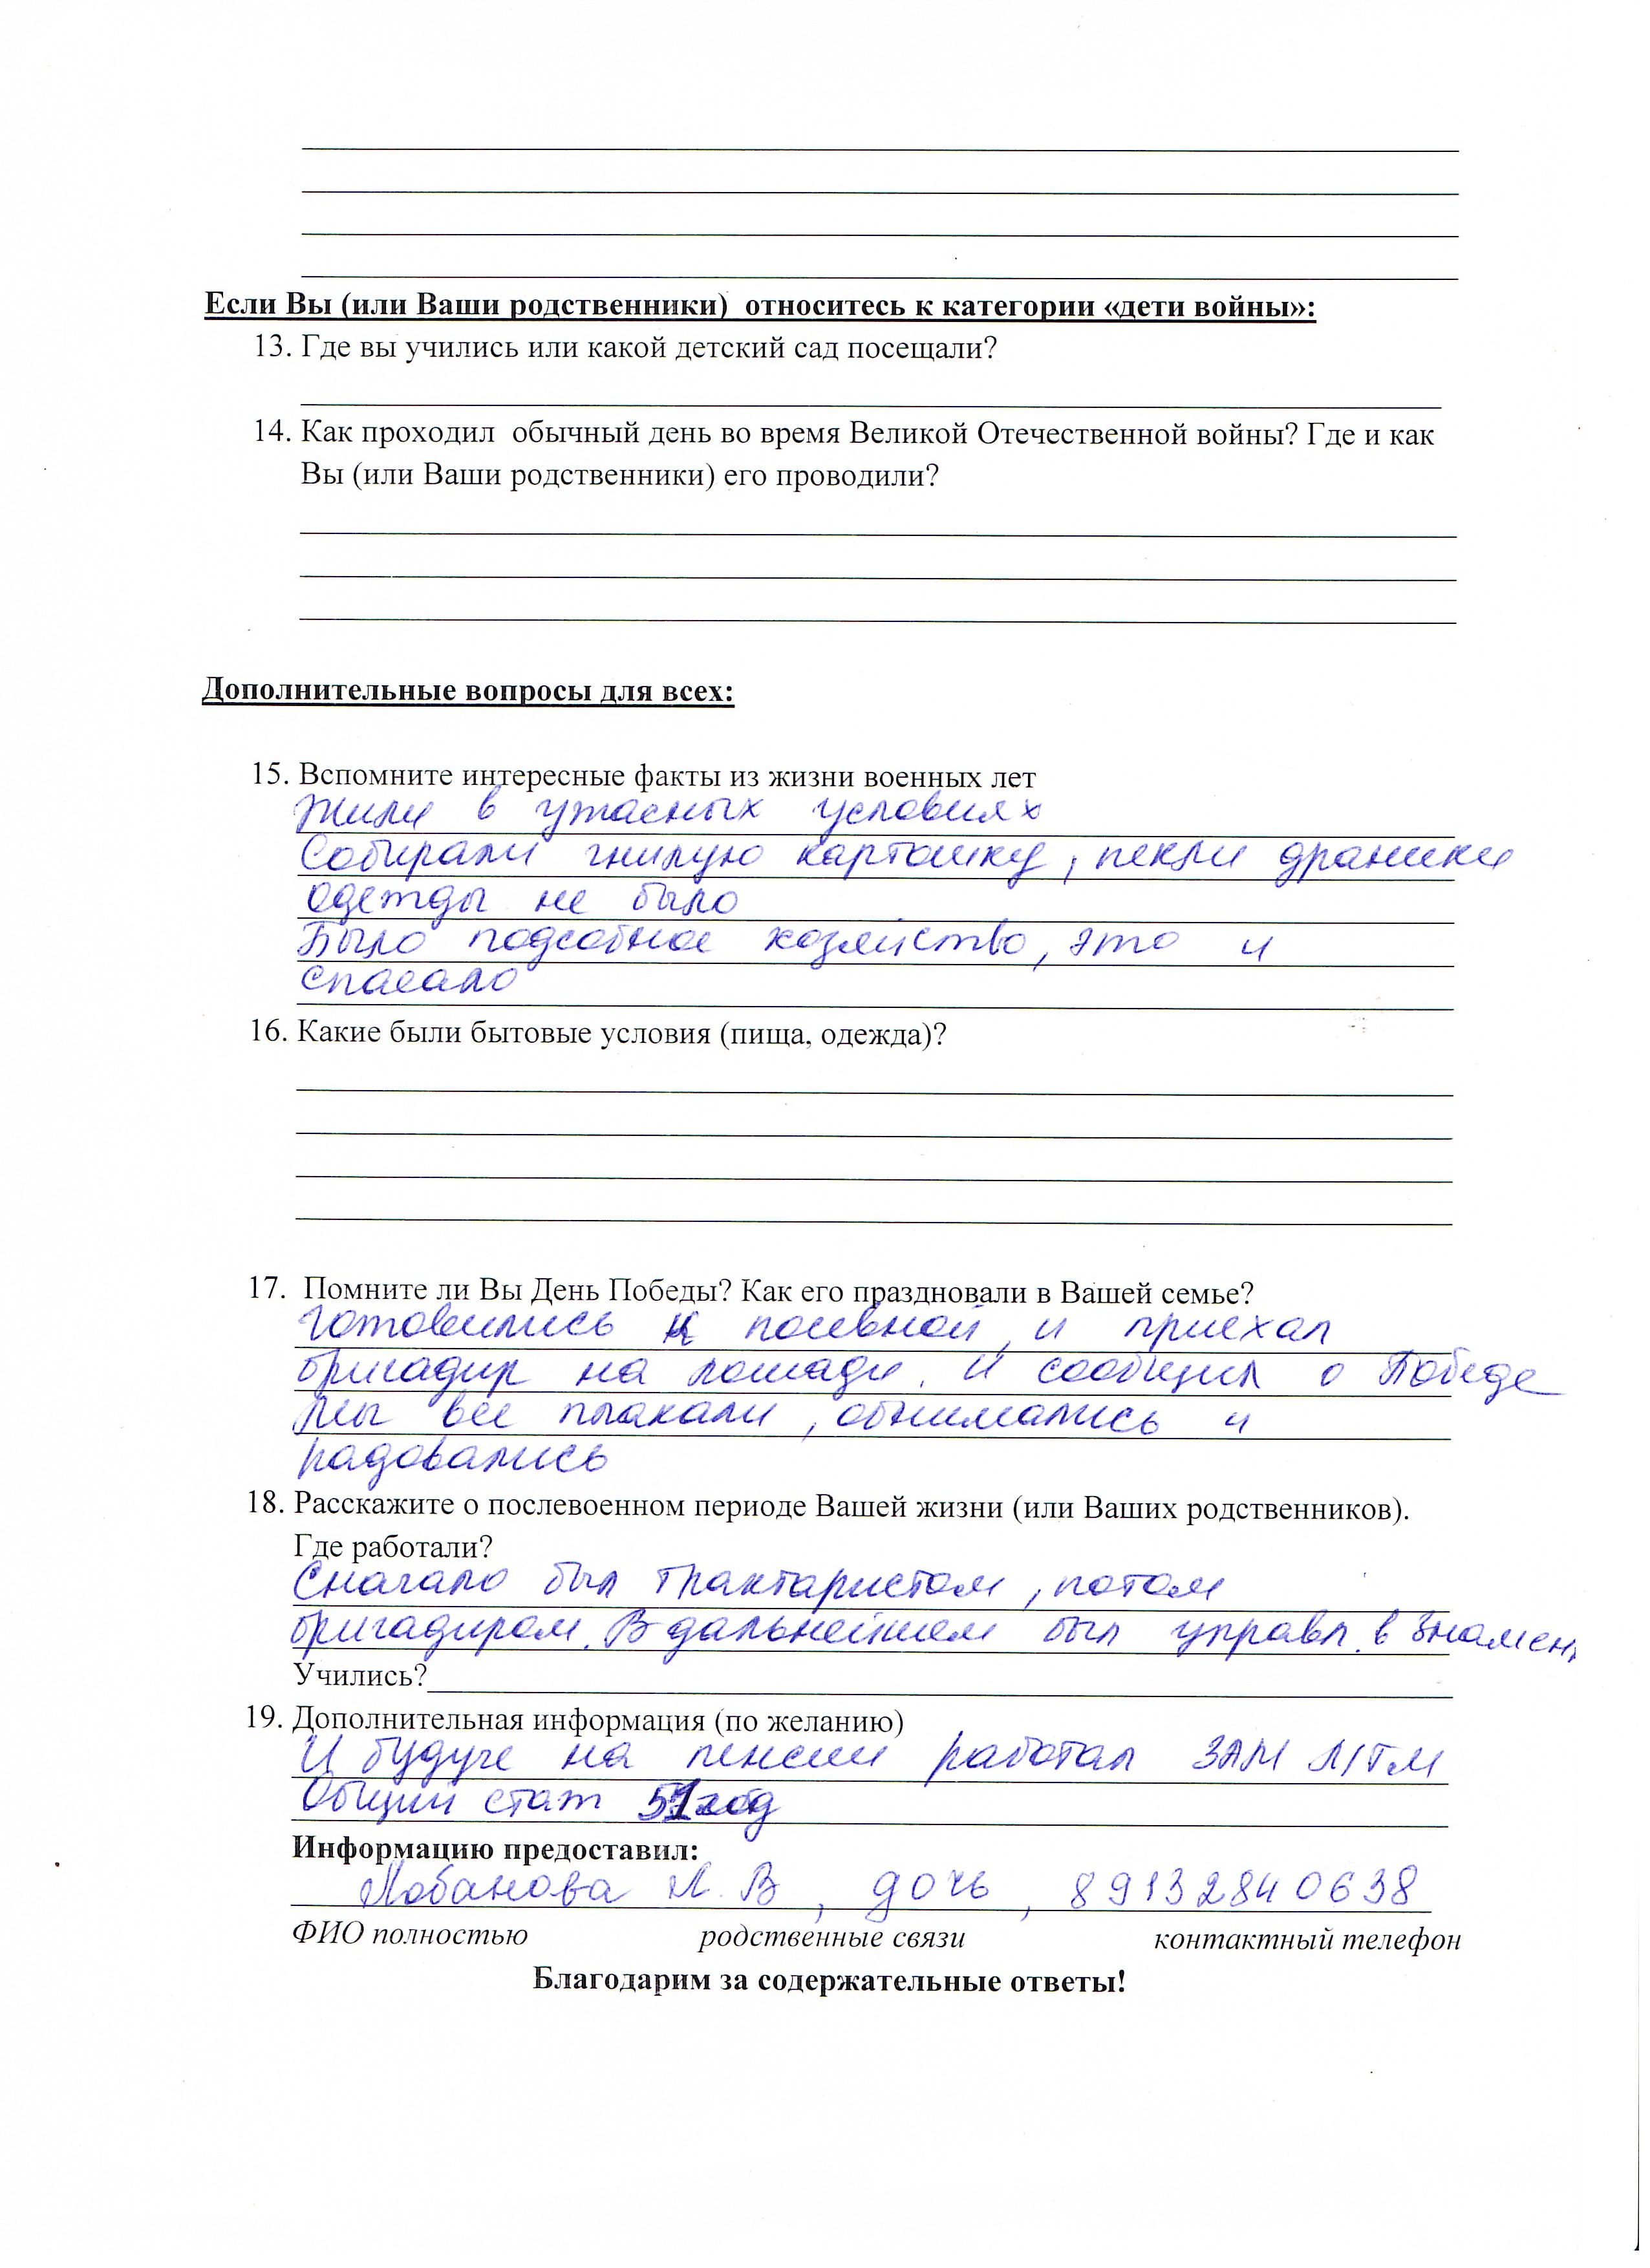 Если Вы (или Ваши родственники) относитесь к категории «дети войны»:
13. Где вы учились или какой детский сад посещали?
14. Как проходил обычный день во время Великой Отечественной войны? Где и как
Вы (или Ваши родственники) его проводили?
Дополнительные вопросы для всех:
15. Вспомните интересные факты из жизни военных лет
Жили в ужасных условиях
Собирали гнилую картошку, пекли драники
Одежды не было
Было подсобное хозяйство, это и
спасало
16. Какие были бытовые условия (пища, одежда)?
17. Помните ли Вы День Победы? Как его праздновали в Вашей семье?
Готовились к посевной, и приехал
бригадир на лошади. И сообщил о Победе
Мы все плакали, обнимались и
радовались
18. Расскажите о послевоенном периоде Вашей жизни (или Ваших родственников).
Где работали?
Сначало был трактаристом, потом
бригадиром. В дальнейшем был управл. в Знамен
Учились?
19. Дополнительная информация (по желанию)
И будуче на пенсии работал ЗАМ МТМ
Общий стаж 51 год
Информацию предоставил:
Лобанова Л. В, дочь, 89132840638
ФИО полностью родственные связи контактный телефон
Благодарим за содержательные ответы!